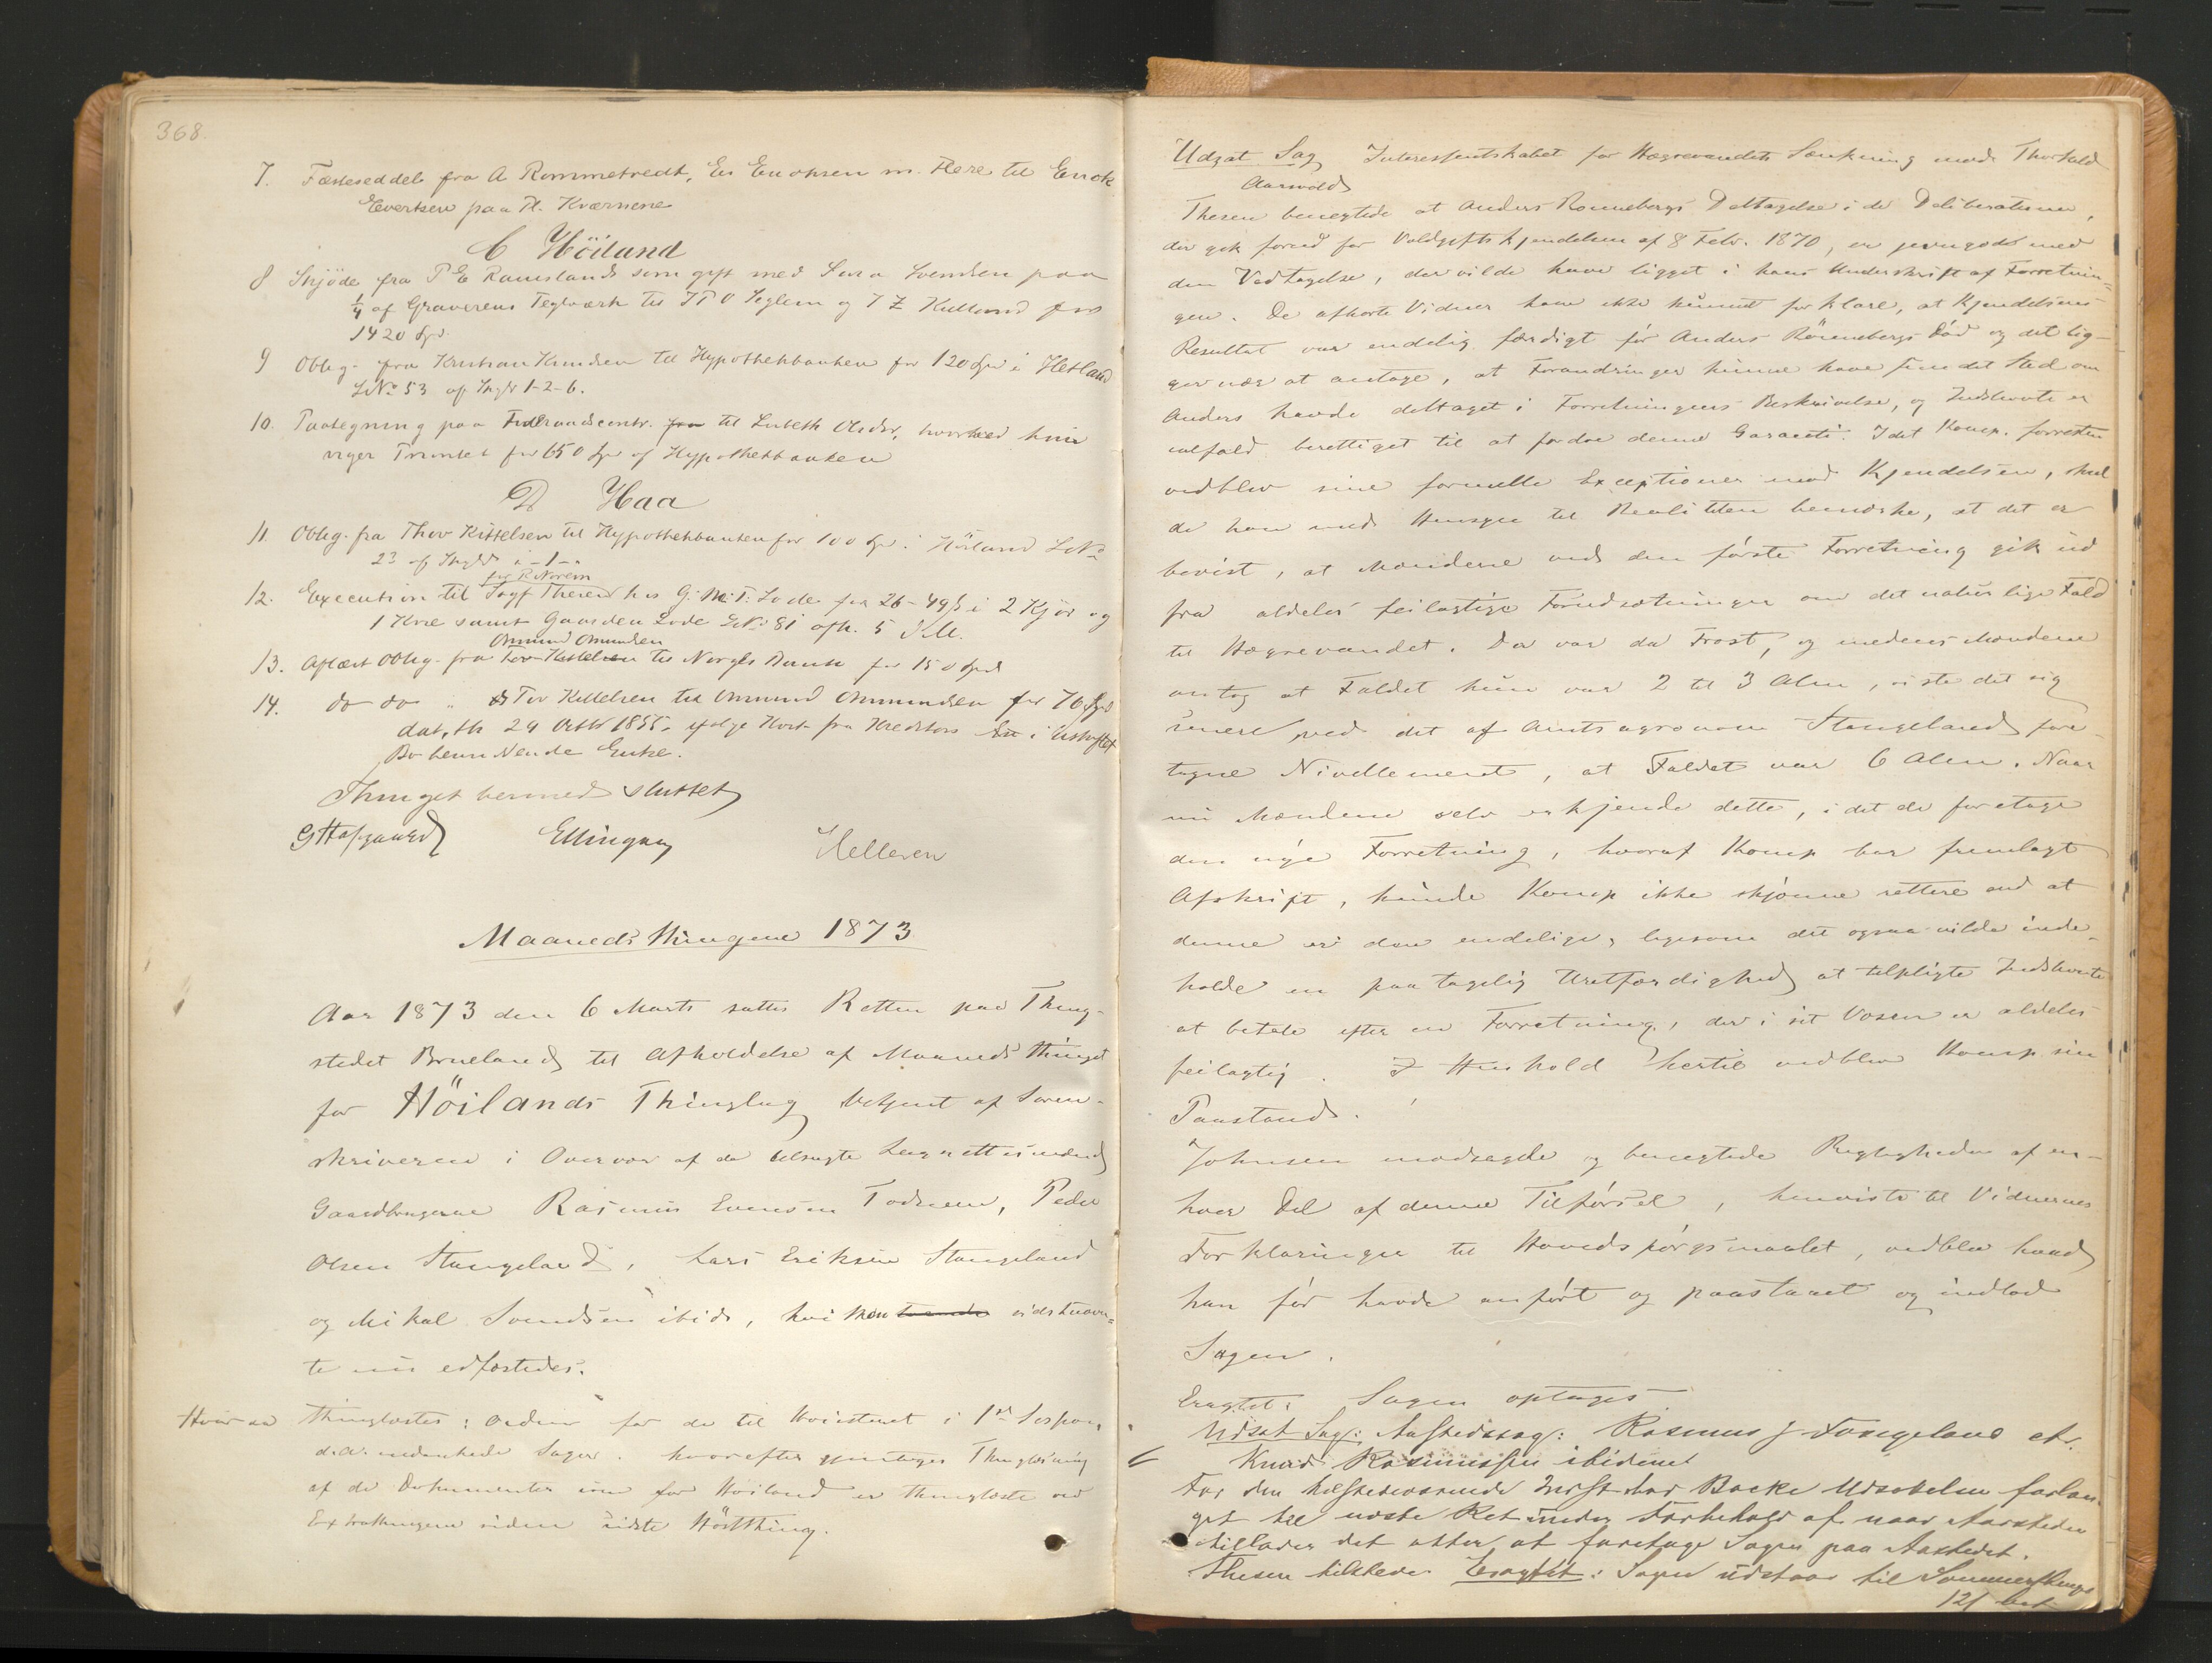 368.
7. Fæsteseddel fra A Rommetvedt, Es Enoksen m. Flere til Enok
Evertsen paa Pl. Kværnene
C Höiland
8 Skjöde fra P E Ramslands som gift med Sara Svendsen paa
1/4 af Graverens Teglværk til I T O Seglem og J Z Kielland for
1420 Spd
9 Oblig. fra Kristian Knudsen til Hypothekbanken for 120 Spd i Hetland
LNo 53 af Skyld 1-2-6.
10. Paategning paa Föderaadscontr. fra til Lisbeth Olsdtr, hvorved hun
viger Prioritet for 650 Spd af Hypothekbanken
D Haa
11. Oblig. fra Thor Kittelsen til Hypothekbanken for 100 Spd i Höiland LNo
23 af Skyld - 1 -
12. Execution til Sagf Thesen hos G. M. T. Lode for 26-49 ß i 2 Kjör og
for R Norem
1 Kvie samt Gaarden Lode LNo 81 afh. 5 Juli.
13. Aflæst Oblig. fra Tov Kittelsen til Norges Bank for 150 Spd
Omund Omundsen
14. do do " Tov Kittelsen til Omund Omundsen for 70 Spd
dat, th 29 Octbr 1855. ifølge Kvit. fra Kreditors i Uskiftet
Bo hensiddende Enke.
Thinget hermed sluttet
G Hofgaard Ellingsen Helleren
Maanedsthingene 1873
Aar 1873 den 6 Marts sattes Retten paa Thing-
stedet Brueland til Afholdelse af Maanedsthinget
for Höilands Thinglag betjent af Soren-
skriveren i Overvær af de tilsagte Lagrettesmænd
Gaardbrugerne Rasmus Svensen Todnem, Peder
Olsen Stangeland, Lars Eriksen Stangeland
og Mikal Svendsen ibid, hvilken sidstnævn=
te nu edfæstedes.
Hvoraa Thinglæstes: Orden for de til Höiesteret i 1ste Session
d. A. indankede Sager. hvorefter gjentages Thinglæsning
af de Dokumenter som for Höiland er thinglæste ved
Extrathingene siden sidste Höstthing.
Udsat Sag Interessentskabet for Hægrevandets Sænkning mod Thorkild
Aarsvold
Thesen benegtede at Anders Rönnebergs Deltagelse i de Deliberationer,
der gik forud for Voldgiftskjendelsen af 8 Febr. 1870, er jevngod med
den Vedtagelse, der vilde have ligget i hans Underskrift af Forretnin=
gen. De afhörte Vidner have ikke kunnet forklare, at Kjendelsens
Resultat var endelig færdigt för Anders Rönnebergs Död og det lig-
ger nær at antage, at Forandringer kunne have fundet Sted om
Anders havde deltaget i Forretningens Beskrivelse, og Indstevnte er
ialfald berettiget til at fordre denne Garanti. Idet Komp. forresten
vedblev sine formelle Exceptioner mod Kjendelsen, skul
de han med Hensyn til Realiteten bemærke, at det er
bevist, at Mændene ved den förste Forretning gik ud
fra aldeles feilagtige Forudsætninger om det naturlige Fald
til Hægrevandet. Da var da Frost, og medens Mændene
antog at Faldet kun var 2 til 3 Alen, viste det sig
senere ved det af Amtsagronom Stangeland fore-
tagne Nivellement, at Faldet var 6 Alen. Naar
nu Mændene selv erkjende dette, i det de foretage
den nye Forretning, hvoraf Komp har fremlagt
Afskrift, kunde Komp ikke skjönne rettere end at
denne er den endelige, ligesom det ogsaa vilde inde-
holde en paatagelig Uretfærdighed at tilpligte Indstevnte
at betale efter en Forretning, der i sit Væsen er aldeles
feilagtig. I Henhold hertil vedblev Komp sin
Paastand.
Johnsen modsagde og benegtede Rigtigheden af en-
hver Del af denne Tilförsel, henviste til Vidnernes
Forklaringer til Hovedspörgsmaalet, vedblev hvad
han för havde anfört og paastaaet og indlod
Sagen.
Eragtet: Sagen optages
Udsat Sag: Aastedssag: Rasmus J. Fougeland ctr.
Knud Rasmussen ibidem
For den tilstedeværende Indst. har Backe Udsættelse forlan-
get til næste Ret under Forbehold af naar Aarstiden
tillader det atter at foretage Sagen paa Aastedet.
Thesen tilstede. Eragtet: Sagen udstaar til Sommerthinget